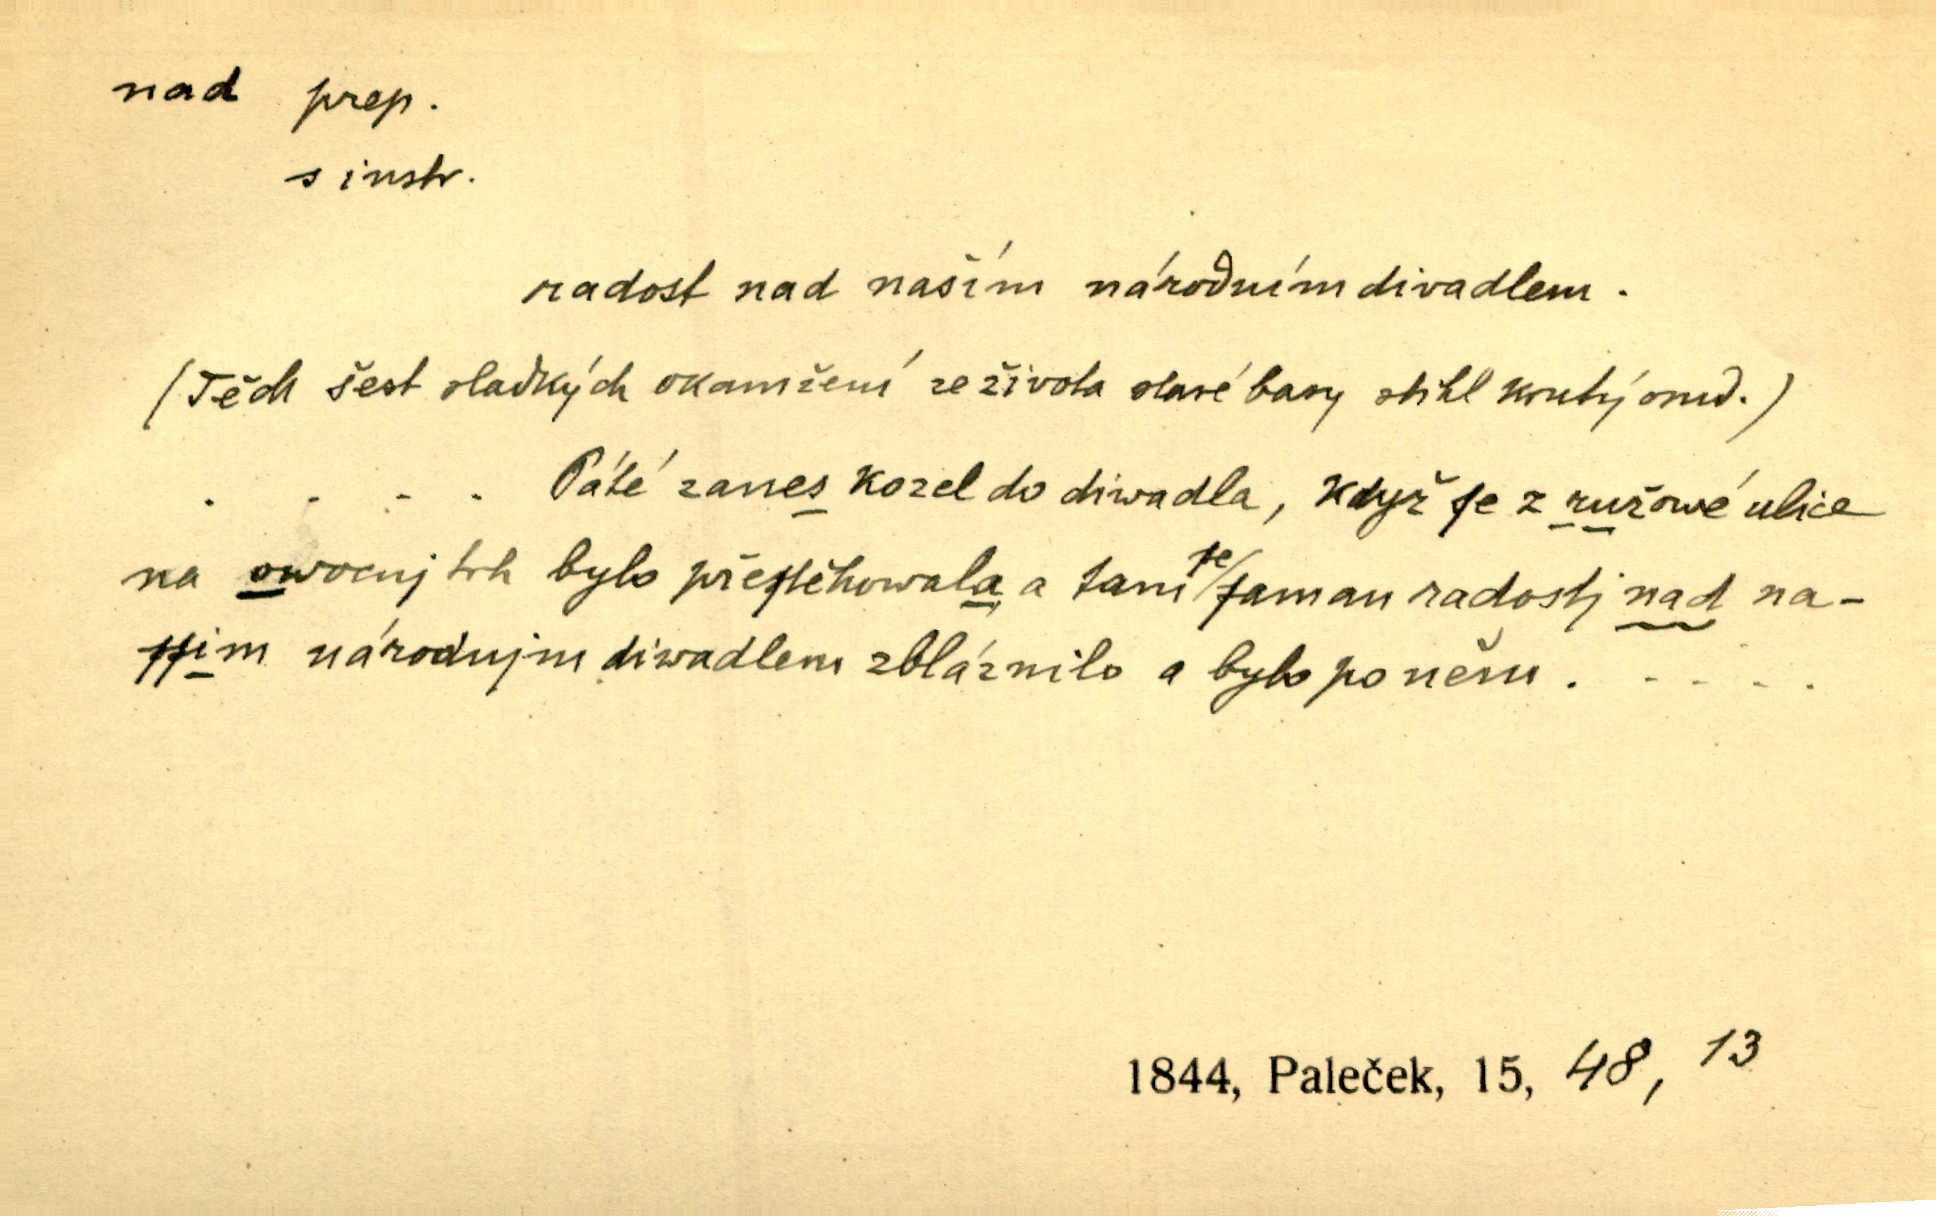 nad prep.
s instr.
radost nad naším národním divadlem.
(Těch šest sladkých okamžení ze života staré basy stihl krutý osud.)
. . . . Páté zanes kozel do diwadla, když ſe z ružowé ulice
na owocnj trh bylo přeſtěhowala, a tam ſe ſaman radostj nad na-
ſſim národnjm diwadlem zbláznilo a bylo po něm. . . . .
1844, Paleček, 15, 48, 13